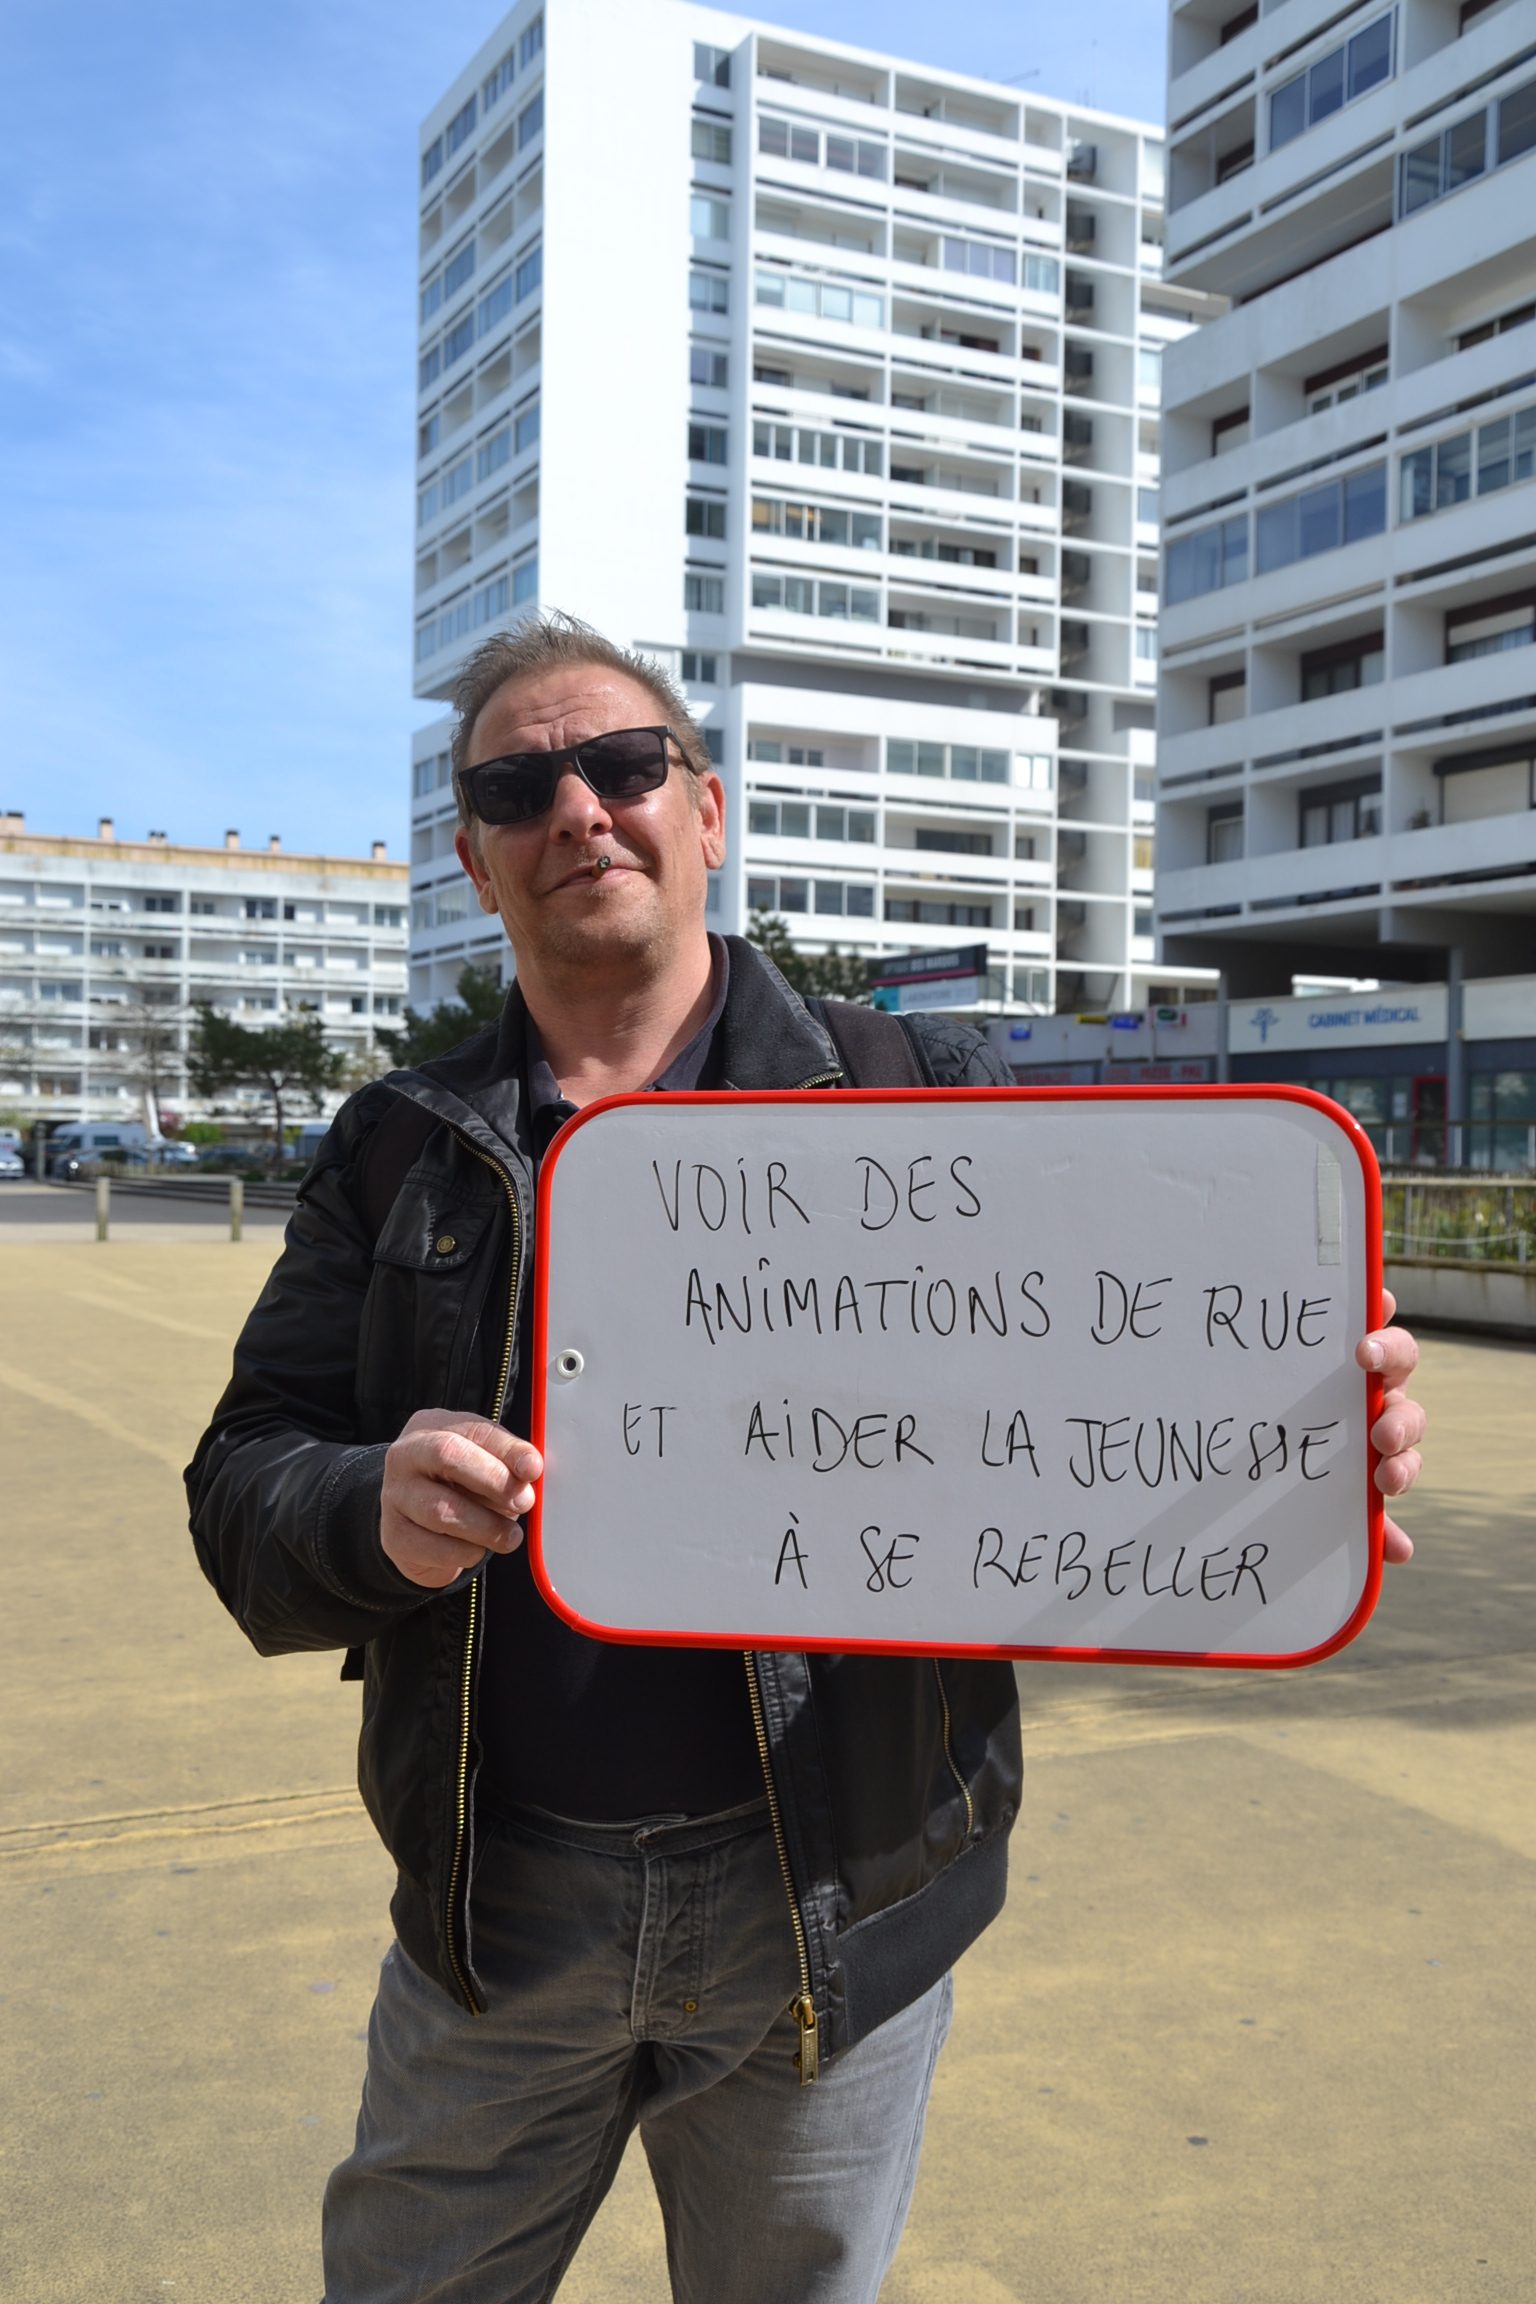 VOIR DES
ANIMATIONS DE RUE
ET AIDER LA JEUNESSE
À SE REBELLER
CABINET MÉDICAL